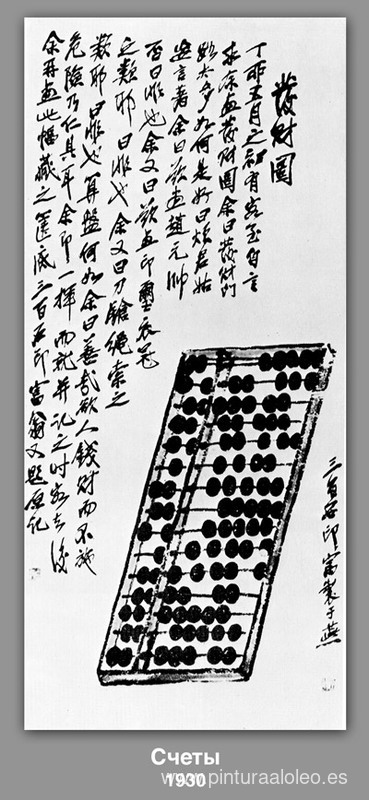 發財圖
丁卯五月之初有客至自言
求余畫發財圖余曰發財門
路太多如何是好曰煩君姑
妄言著余曰欲畫趙元帥
否曰非也余又曰欲畫印璽衣冠
之類耶曰非也余又曰刀鎗繩索之
類耶曰非也算盤何如余曰善哉欲人錢財而不施
危險乃仁具耳余即一揮而就并記之時客去後
余再畫此幅藏之篋底三百石印富翁又題原記
三百石印富製于燕
Счеты
1930
www.pinturaaloleo.es